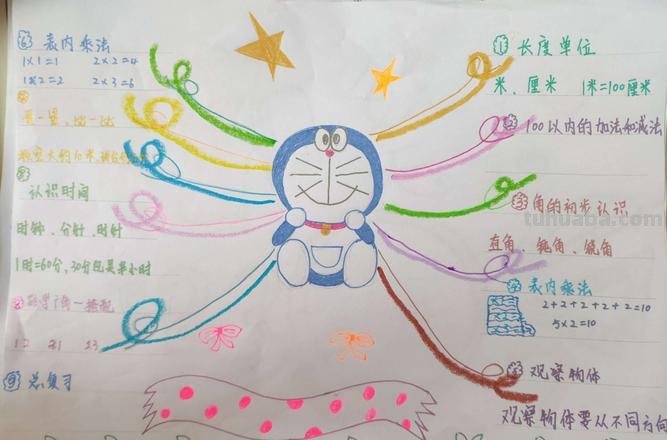 ① 长度单位
米、厘米 1米=100厘米
② 100以内的加法和减法
③ 角的初步认识
直角、钝角、锐角
④ 表内乘法
2+2+2+2+2=10
5×2=10
观察物体
观察物体要从不同方向
⑥ 表内乘法
1×1=1 2×2=4
1×2=2 2×3=6
量一量,比一比
认识时间
时钟、分针、时针
1时=60分,30分也是半小时
数学广角一搭配
12 21 23
⑨ 总复习
tuhuaba.com